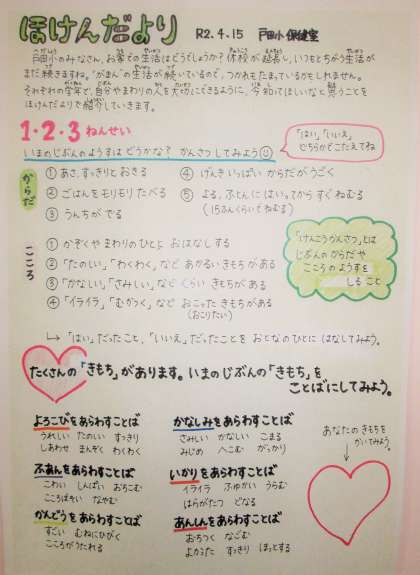 ほけんだより R2.4.15 戸田小 保健室
戸田小のみなさん、お家での生活はどうでしょうか？休校が延長し、いつもとちがう生活が
まだ続きますね。"がまん"の生活が続いているので、つかれもたまっているかもしれません。
それぞれの学年で、自分やまわりの人を大切にできるように、今知ってほしいなと思うことを
ほけんだよりで紹介していきます。
1・2・3 ねんせい
いまのじぶんのようすはどうかな？ かんさつしてみよう
「はい」「いいえ」
どちらかどこたえてね
からだ
① あさ、すっきりとおきる
② ごはんをモリモリたべる
③ うんちがでる
④ げんきいっぱい からだがうごく
⑤ よる、ふとんにはいってから すぐねむる
(15ふんくらいでねむる)
こころ
① かぞくや まわりのひとと おはなしする
② 「たのしい」「わくわく」など あかるいきもちがある
③ 「かなしい」「さみしい」など くらい きもちがある
④ 「イライラ」「むかつく」など おこったきもちがある
(おこりたい)
「けんこうかんさつ」とは
じぶんのからだや
こころのようすを
しること
↳ 「はい」だったこと、「いいえ」だったことを おとなのひとに はなしてみよう。
たくさんの「きもち」があります。いまのじぶんの「きもち」を
ことばにしてみよう。
よろこびをあらわすことば
うれしい たのしい すっきり
しあわせ まんぞく わくわく
かなしみをあらわすことば
さみしい かなしい こまる
みじめ へこむ がっかり
ふあんをあらわすことば
こわい しんぱい おちこむ
こころぼそい なやむ
いかりをあらわすことば
イライラ ふゆかい うらむ
はらがたつ どなる
かんどうをあらわすことば
すごい むねにひびく
こころがうたれる
あんしんをあらわすことば
おちつく なごむ
よかった すっきり ほっとする
あなたのきもちを
かいてみよう。